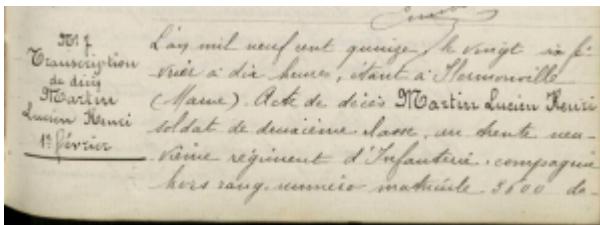 No 7
Transcription
de décès
Martin
Lucien Henri
1er février
L'an mil neuf cent quinze, le vingt six fé-
vrier à dix heures, étant à Hermonville
(Marne). Acte de décès Martin Lucien Henri
soldat de deuxième classe, au trente neu-
vième régiment d'Infanterie. compagnie
hors rang. numéro matricule 3600 dé-